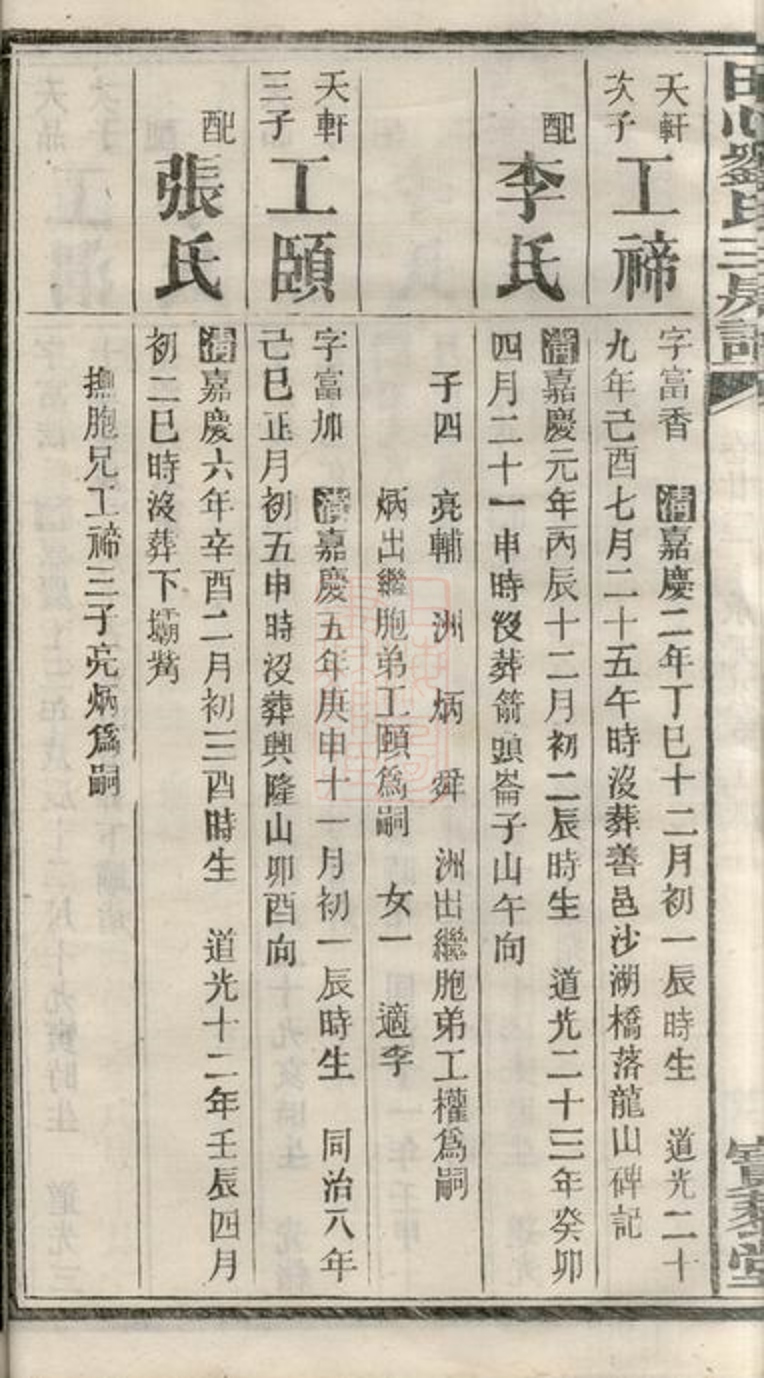 劉氏三房譜
天軒
次子
工禘
字富香　清嘉慶二年丁巳十二月初一辰時生　道光二十
九年己酉七月二十五午時沒葬善邑沙湖橋落龍山碑記
配
李氏
清嘉慶元年丙辰十二月初二辰時生　道光二十三年癸卯
四月二十一申時沒葬箭頭崙子山午向
子四　亮輔　洲　炳　舜　洲出繼胞弟工權爲嗣
炳出繼胞弟工頤爲嗣　女一　適李
天軒
三子
工頤
字富加　清嘉慶五年庚申十一月初一辰時生　同治八年
己巳正月初五申時沒葬興隆山卯酉向
配
張氏
清嘉慶六年辛酉二月初三酉時生　道光十二年壬辰四月
初二巳時沒葬下壩
撫胞兄工禘三子亮炳爲嗣
堂